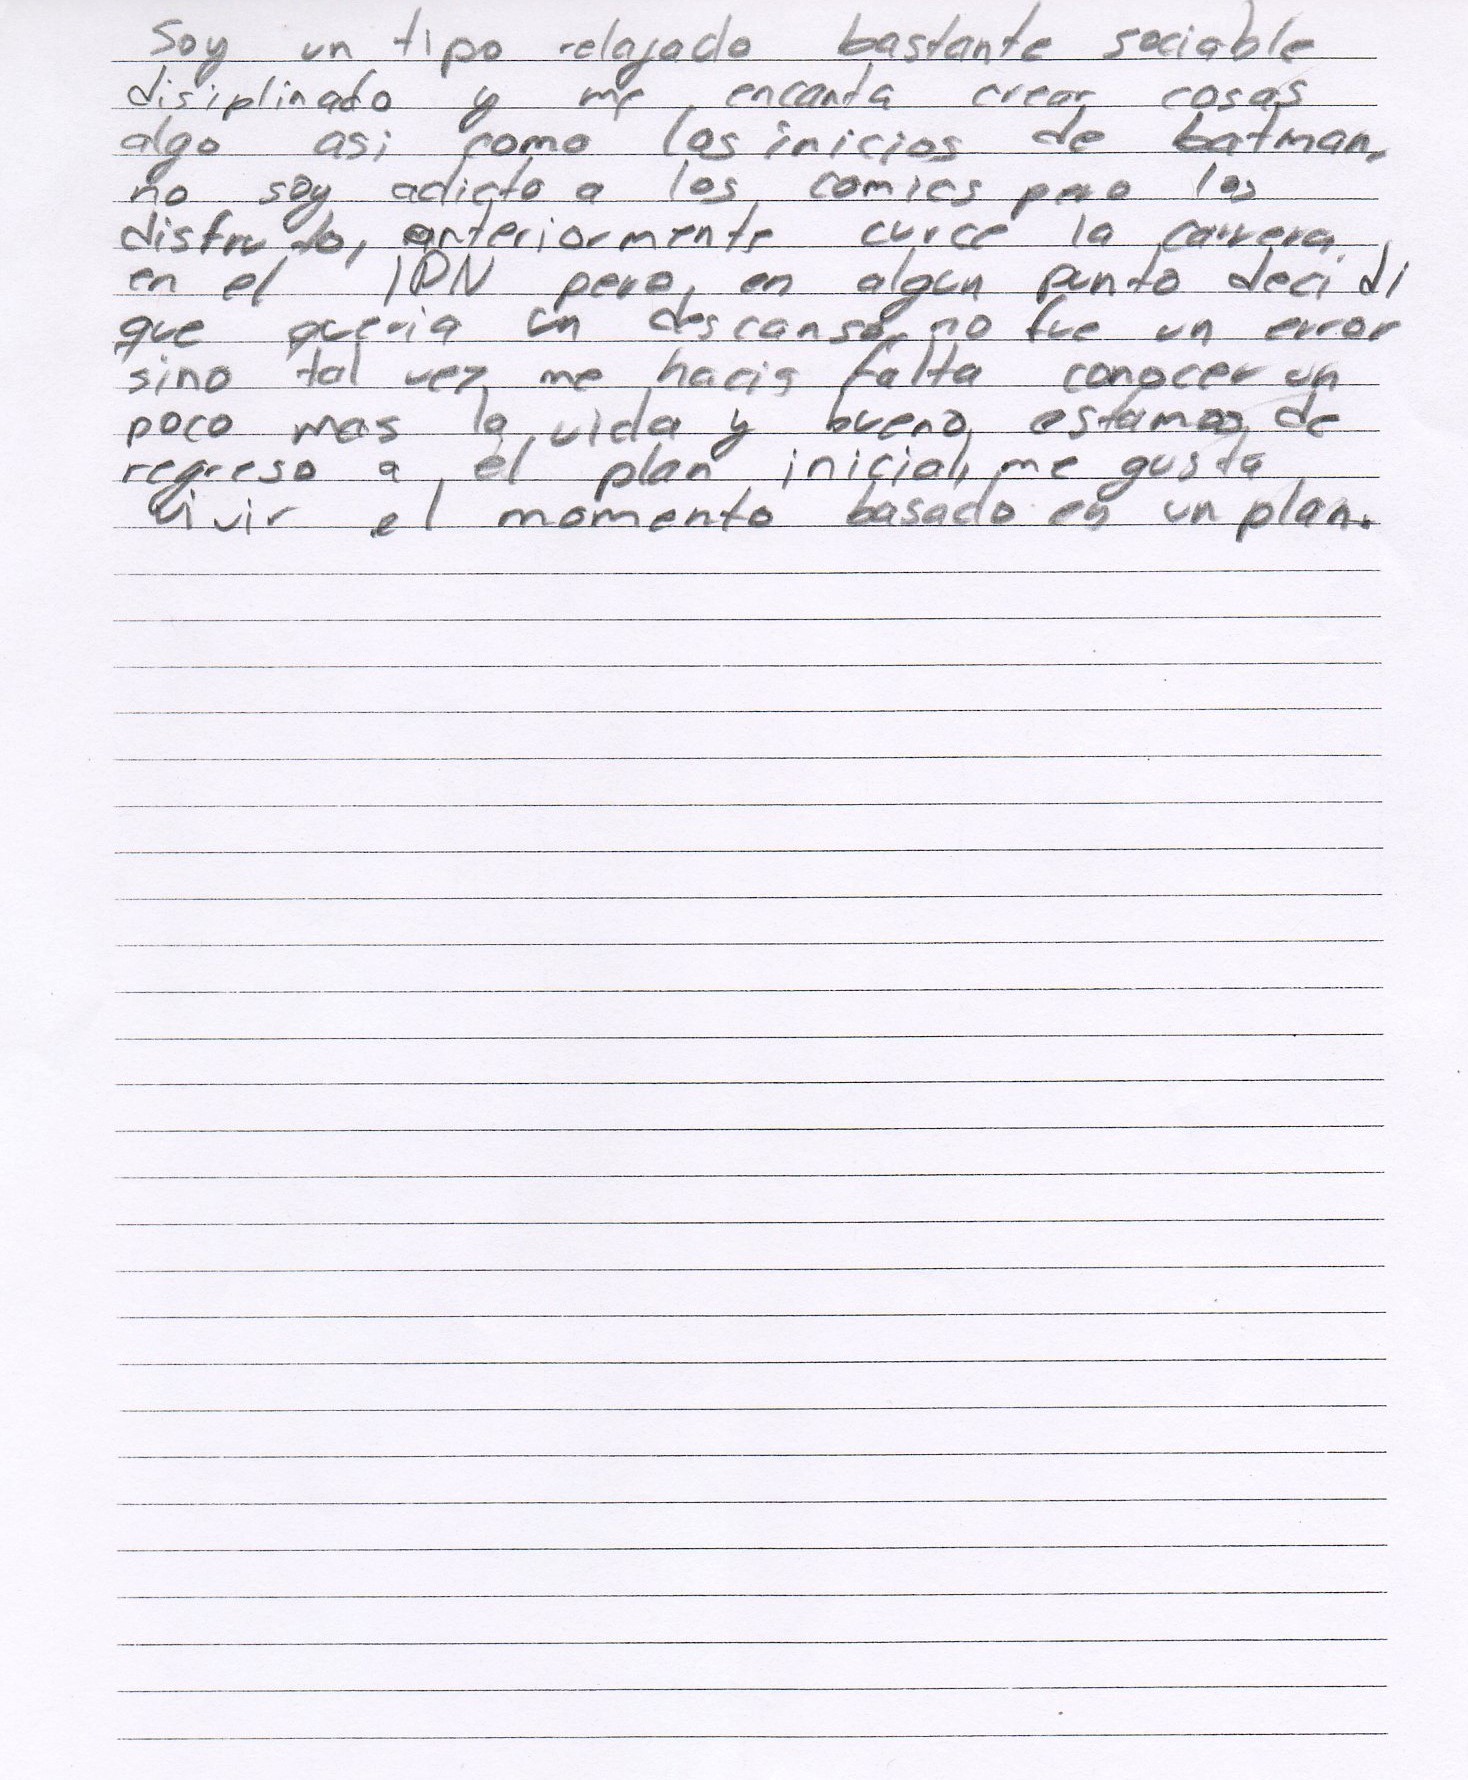 Soy un tipo relajado bastante sociable
disiplinado y me encanta crear cosas
algo asi como los inicios de batman,
no soy adicto a los comics pero los
disfruto, anteriormente curce la carrera
en el IPN pero, en algun punto decidi
que queria un descanso, no fue un error
sino tal vez me hacia falta conocer un
poco mas la vida y bueno estamos de
regreso a el plan inicial, me gusta
vivir el momento basado en un plan.